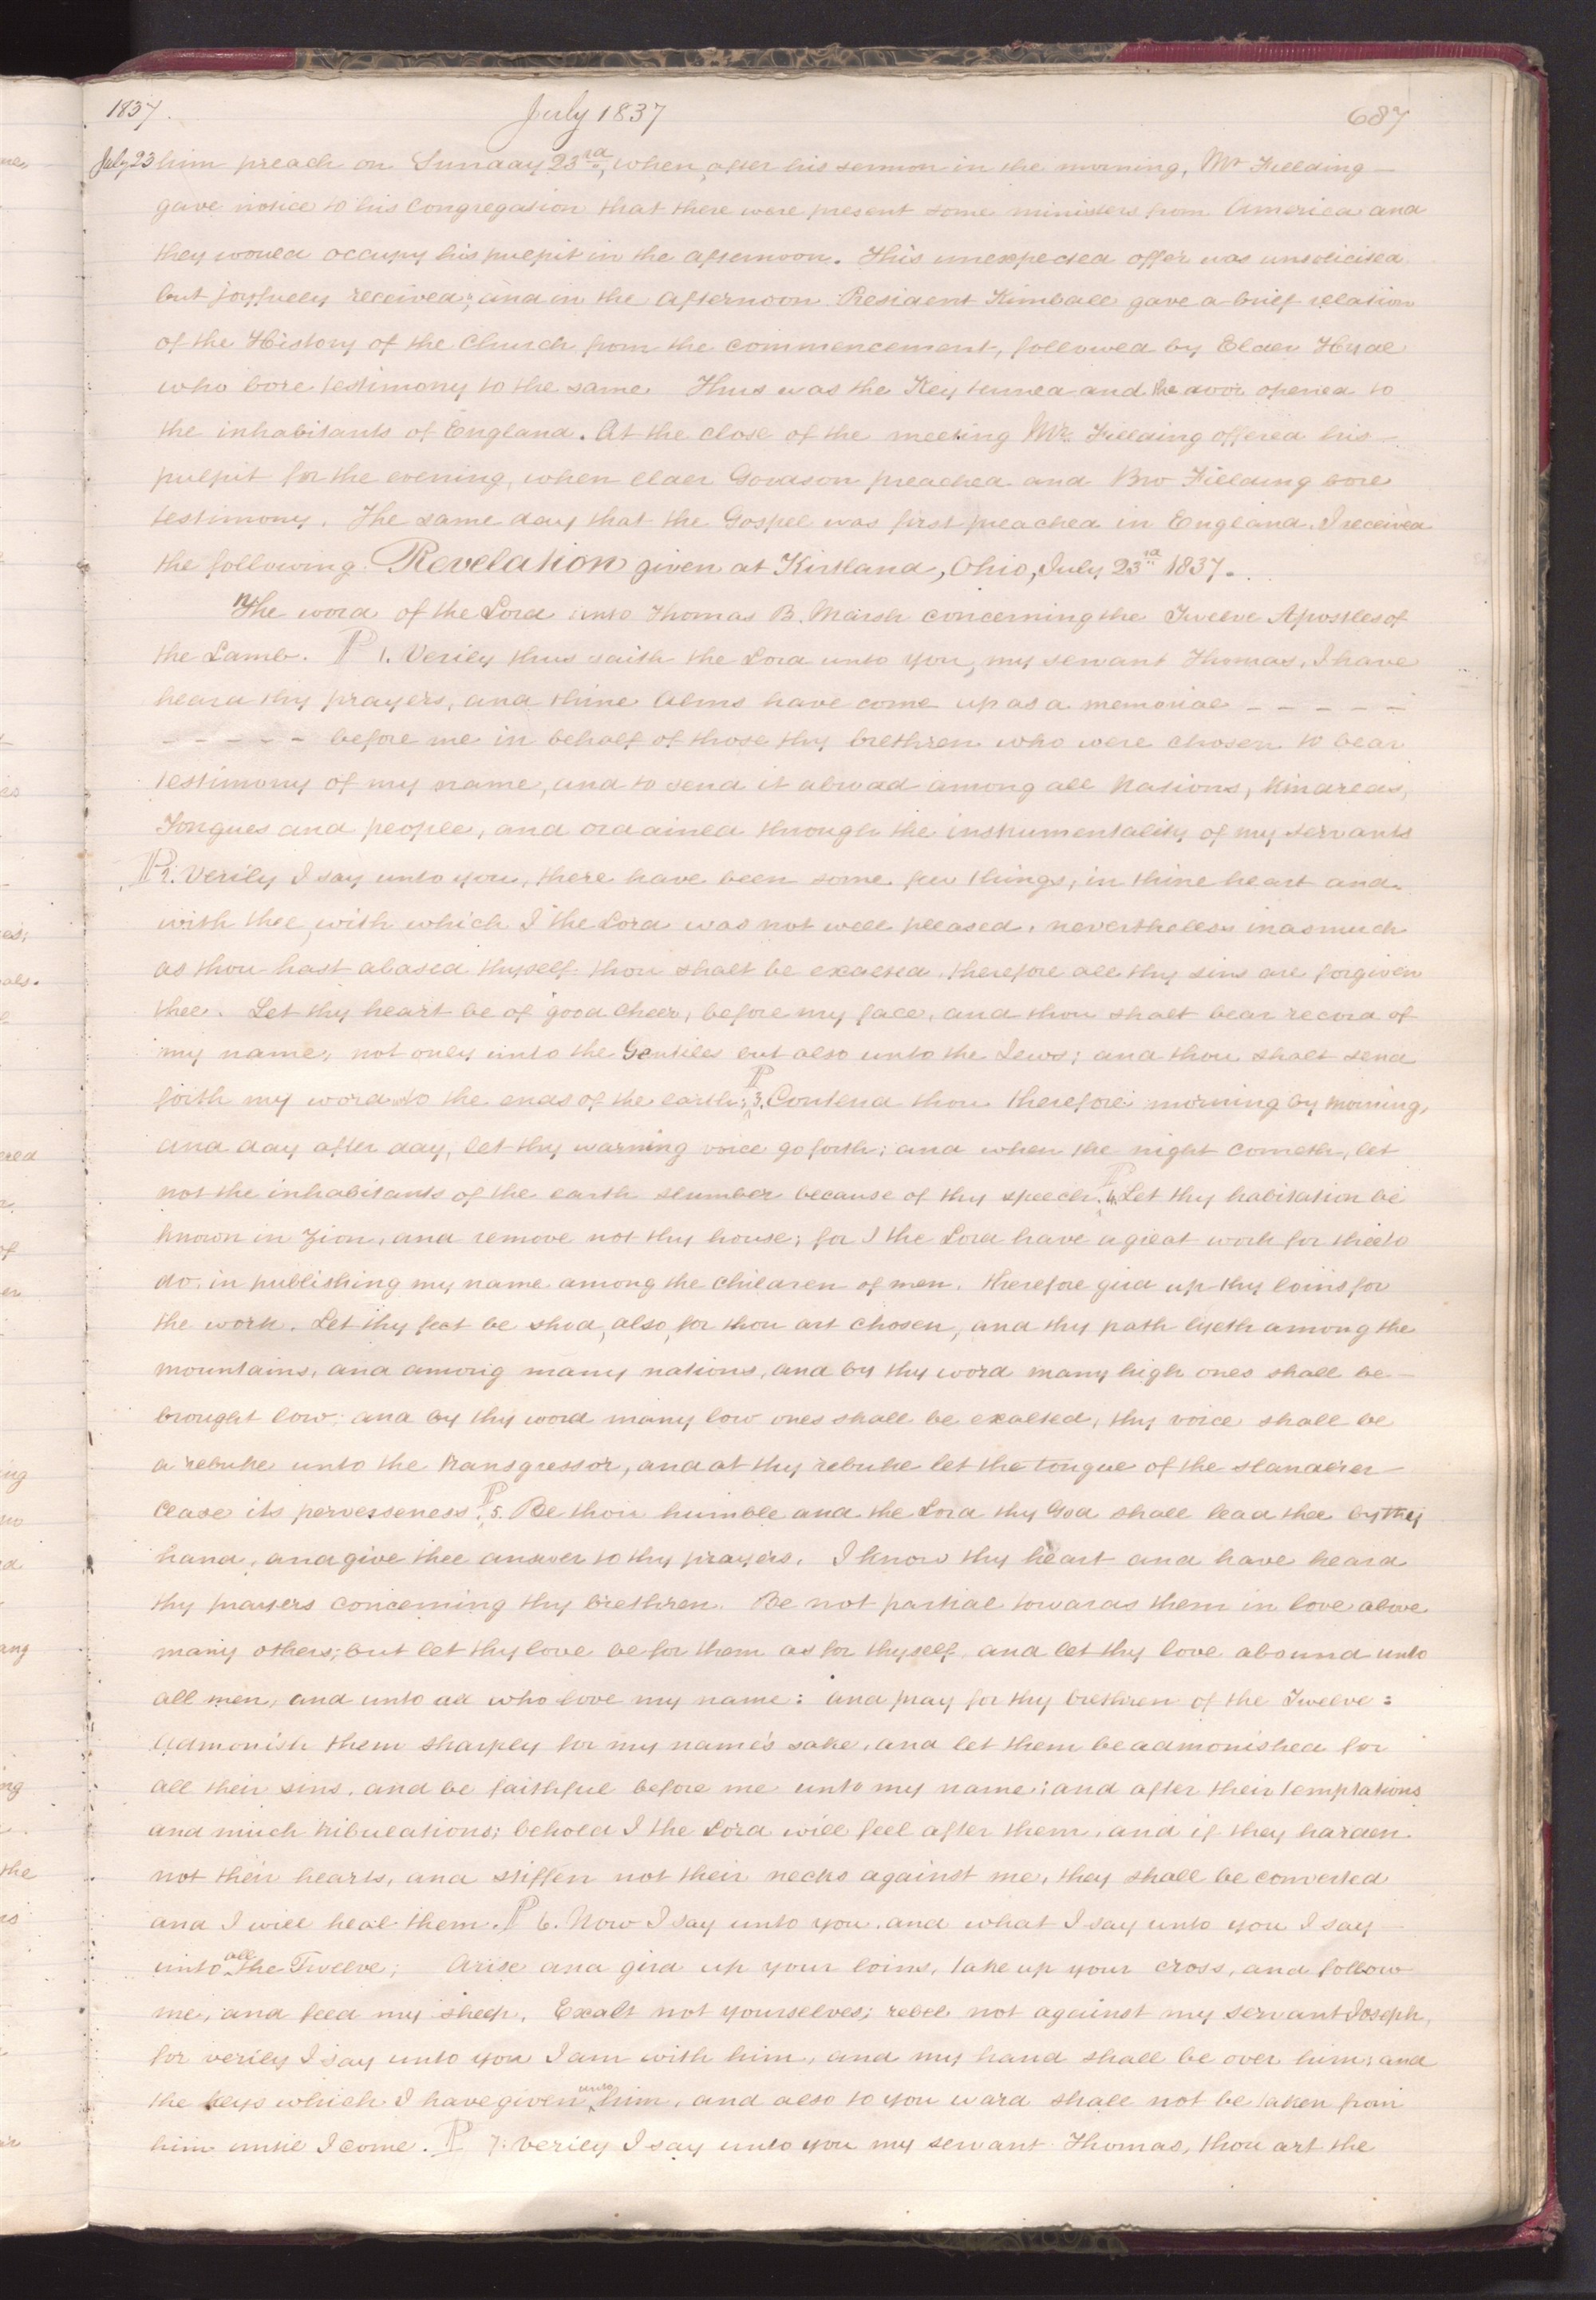 1837. July 1837 687
July 23 him preach on Sunday 23rd, when, after his sermon in the morning, Mr Fielding
gave notice to his Congregation that there were present some ministers from America and
they would occupy his pulpit in the afternoon. This unexpected offer was unsolicited
but joyfully received; and in the afternoon President Kimball gave a brief relation
of the History of the Church from the commencement, followed by Elder Hyde
who bore testimony to the same Thus was the Key turned and the door opened to
the inhabitants of England. At the close of the meeting Mr. Fielding offered his
pulpit for the evening, when elder Goodson preached and Bro Fielding bore
testimony. The same day that the Gospel was first preached in England, I received
the following Revelation given at Kirtland, Ohio, July 23rd 1837.
The word of the Lord unto Thomas B. Marsh concerning the Twelve Apostles of
the Lamb. ¶ 1. Verily thus saith the Lord unto you, my servant Thomas, I have
heard thy prayers, and thine Alms have come up as a memorial – – – – –
– – – – – before me in behalf of those thy brethren who were chosen to bear
testimony of my name, and to send it abroad among all Nations, Kindreds,
Tongues and people, and ordained through the instrumentality of my servants
¶ 2. Verily I say unto you, there have been some few things, in thine heart and
with thee, with which I the Lord was not well pleased, nevertheless inasmuch
as thou hast abased thyself thou shalt be exalted, therefore all thy sins are forgiven
thee. Let thy heart be of good cheer, before my face, and thou shalt bear record of
my name, not only unto the Gentiles but also unto the Jews; and thou shalt send
forth my word unto the ends of the earth; ¶ 3. Contend thou therefore morning by morning,
and day after day, let thy warning voice go forth; and when the night cometh, let
not the inhabitants of the earth slumber because of thy speech. ¶ 4. Let thy habitation be
known in Zion, and remove not thy house; for I the Lord have a great work for thee to
do, in publishing my name among the children of men. therefore gird up thy loins for
the work. Let thy feet be shod, also, for thou art chosen, and thy path lyeth among the
mountains, and among many nations, and by thy word many high ones shall be
brought low; and by thy word many low ones shall be exalted, thy voice shall be
a rebuke unto the transgressor, and at thy rebuke let the tongue of the slanderer
cease its perverseness. ¶ 5. Be thou humble and the Lord thy God shall lead thee by thy
hand, and give thee answer to thy prayers. I know thy heart and have heard
thy prayers concerning thy brethren. Be not partial towards them in love above
many others; but let thy love be for them as for thyself, and let thy love abound unto
all men, and unto all who love my name: and pray for thy brethren of the Twelve:
Admonish them sharply for my name's sake, and let them be admonished for
all their sins, and be faithful before me unto my name; and after their temptations
and much tribulations; behold I the Lord will feel after them, and if they harden
not their hearts, and stiffen not their necks against me, they shall be converted
and I will heal them. ¶ 6. Now I say unto you, and what I say unto you I say
unto all the Twelve; Arise and gird up your loins, take up your cross, and follow
me, and feed my sheep. Exalt not yourselves; rebel not against my servant Joseph,
for verily I say unto you I am with him, and my hand shall be over him; and
the keys which I have given unto him, and also to you ward shall not be taken from
him until I come. ¶ 7. Verily I say unto you my servant Thomas, thou art the